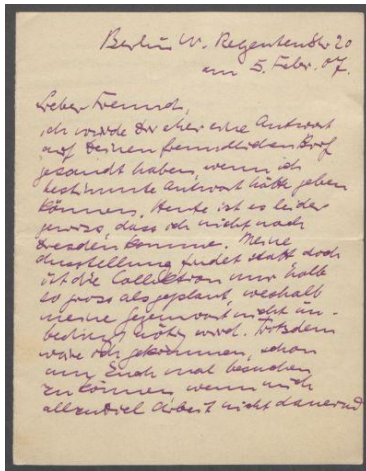 Berlin W. Regentenstr 20
am 5. Febr. 07.
Lieber Freund,
ich würde Dir eher eine Antwort
auf Deinen freundlichen Brief
gesandt haben, wenn ich
bestimmte Antwort hätte geben
können. Heute ist es leider
gewiss, dass ich nicht nach
Dresden komme. Meine
Ausstellung findet statt doch
ist die Collektion nur halb
so gross als geplant, weshalb
meine Gegenwart nicht un-
bedingt nötig wird. Trotzdem
wäre ich gekommen, schon
um Euch mal besuchen
zu können, wenn mich
allzuviel Arbeit nicht dauernd